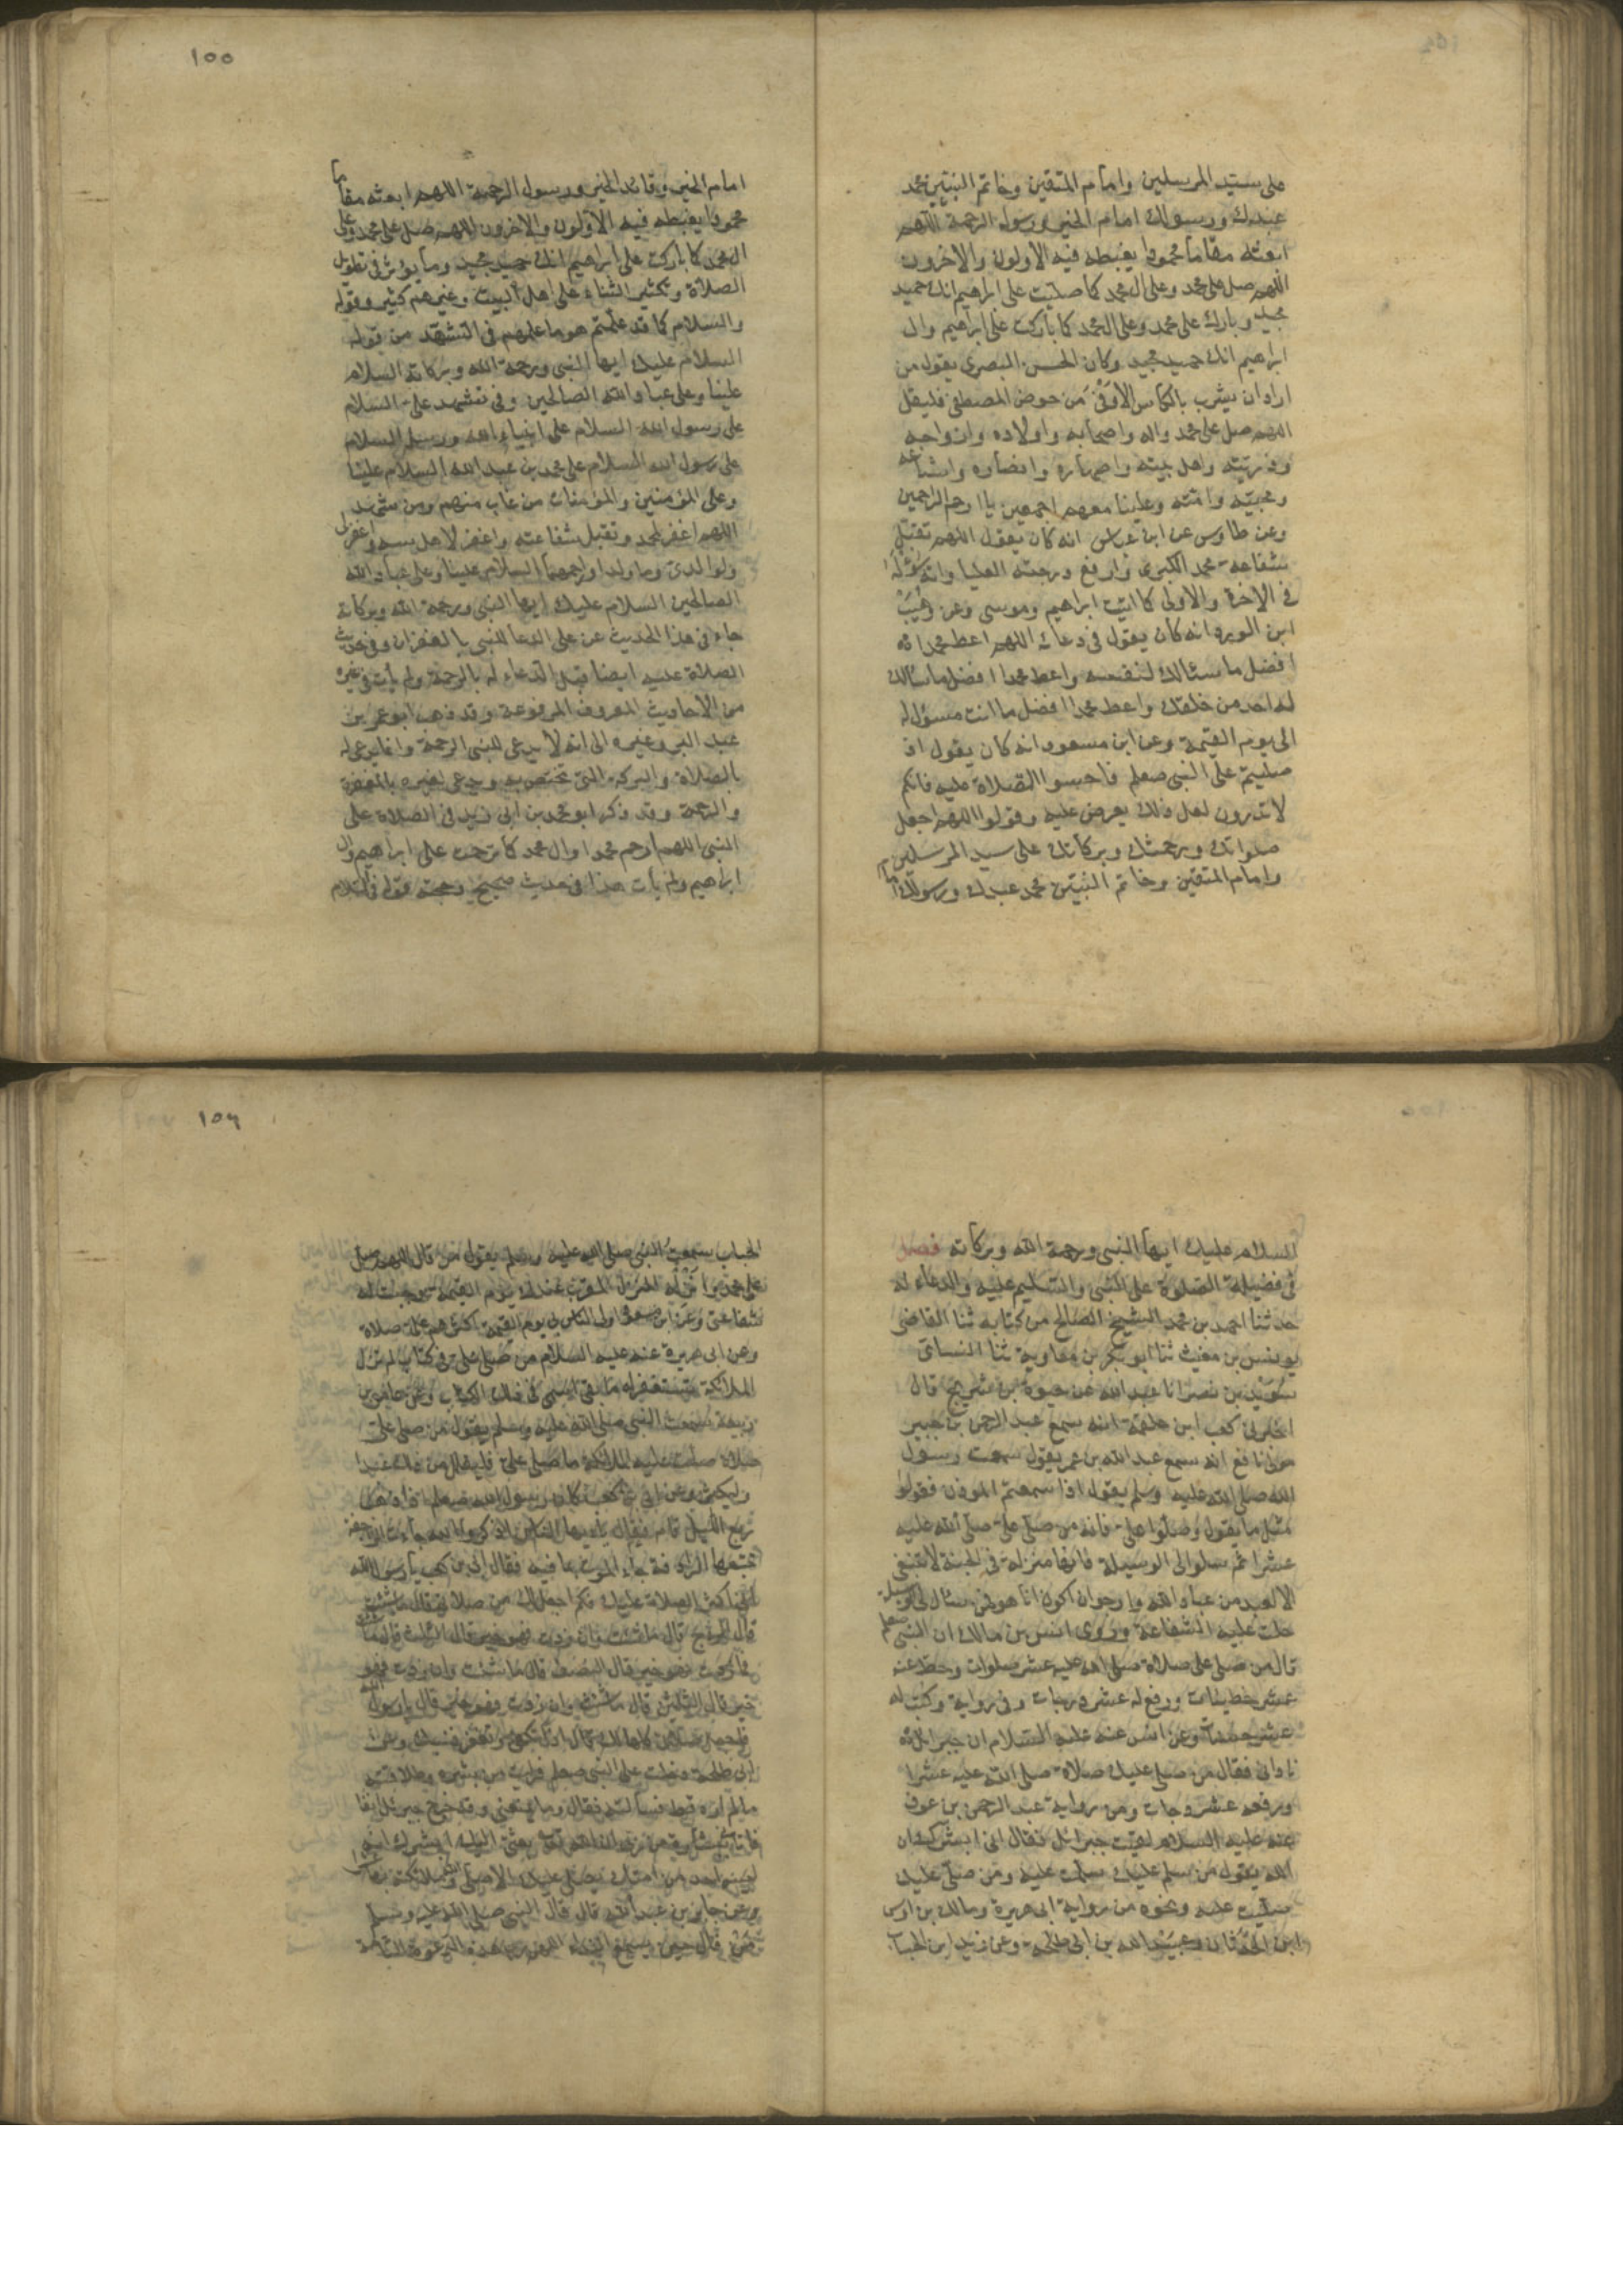 على سيد المرسلين وامام المتقين وخاتم النبيين محمد
عبدك ورسولك امام الخير ورسول الرحمة اللهم
ابعثه مقاما محمودا يغبطه فيه الاولون والاخرون
اللهم صل على محمد وعلى ال محمد كما صليت على ابراهيم انك حميد
مجيد وبارك على محمد وعلى ال محمد كما باركت على ابراهيم وال
ابراهيم انك حميد مجيد وكان الحسن البصرى يقول من
اراد ان يشرب بالكاس الاوفى من حوض المصطفى فليقل
اللهم صل على محمد واله واصحابه واولاده وازواجه
وذريته واهل بيته واصهاره وانصاره واشياعه
ومحبيه وامته وعلينا معهم اجمعين يا ارحم الراحمين
وعن طاوس عن ابن عباس انه كان يقول اللهم تقبل
شفاعة محمد الكبرى وارفع درجته العليا واته سؤله
فى الاخرة والاولى كما اتيت ابراهيم وموسى وعن وهيب
ابن الورد انه كان يقول فى دعائه اللهم اعط محمدا
افضل ما سئالك لنفسه واعط محمدا افضل ما سئالك
له احد من خلقك واعط محمدا افضل ما انت مسؤل له
الى يوم القيمة وعن ابن مسعود انه كان يقول اذا
صليتم على النبى صعلم فاحسنوا الصلاة عليه فانكم
لا تدرون لعل ذلك يعرض عليه وقولوا اللهم اجعل
صلواتك ورحمتك وبركاتك على سيد المرسلين
وامام المتقين وخاتم النبيين محمد عبدك ورسولك
١٥٥
امام الخير وقائد الخير ورسول الرحمة اللهم ابعثه مقاما
محمودا يغبطه فيه الاولون والاخرون اللهم صل على محمد وعلى
ال محمد كما باركت على ابراهيم انك حميد مجيد وما يؤثر فى تطويل
الصلاة وتكثير الثناء على اهل البيت وغيرهم كثير وقوله
والسلام كما قد علمتم هو ما علمهم فى التشهد من قوله
السلام عليك ايها النبى ورحمة الله وبركاته السلام
علينا وعلى عباد الله الصالحين وفى تشهد على السلام
على رسول الله السلام على انبياء الله ورسله السلام
على رسول الله السلام على محمد بن عبد الله السلام علينا
وعلى المؤمنين والمؤمنات من غاب منهم ومن شهد
اللهم اغفر لمحمد وتقبل شفاعته واغفر لاهل بيته واغفر لى
ولوالدى وما ولدا وارحمهما السلام علينا وعلى عباد الله
الصالحين السلام عليك ايها النبى ورحمة الله وبركاته
جاء فى هذا الحديث عن على الدعا للنبى بالغفران وفى حديث
الصلاة عليه ايضا قبل الدعاء له بالرحمة ولم يأت فى غيره
من الاحاديث المعروف المرفوعة وقد ذهب ابو عمر بن
عبد البر وغيره الى انه لا يدعى للنبى الرحمة وانما يدعى له
بالصلاة والبركة التى تختص به ويدعى لغيره بالمغفرة
والرحمة وقد ذكر ابو محمد بن ابى زيد فى الصلاة على
النبى اللهم ارحم محمدا وال محمد كما ترحمت على ابراهيم وال
ابراهيم ولم يأت هذا فى حديث صحيح وحجته قوله فى السلام
السلام عليك ايها النبى ورحمة الله وبركاته فصل
فى فضيلة الصلوة على النبى والتسليم عليه والدعاء له
حدثنا احمد بن محمد الشيخ الصالح من كتابه ثنا القاضى
يونس بن مغيث ثنا ابو بكر بن معاوية ثنا النسائى
سويد بن نصر انا عبد الله عن حيوة بن شريح قال
اخبرنى كعب ابن علقمة انه سمع عبد الرحمن بن جبير
مولى نافع انه سمع عبد الله بن عمر يقول سمعت رسول
الله صلى الله عليه وسلم يقول اذا سمعتم المؤذن فقولوا
مثل ما يقول وصلوا على فانه من صلى على صلى الله عليه
عشرا ثم سلوا لى الوسيلة فانها منزلة فى الجنة لا تنبغى
الا لعبد من عباد الله وارجو ان اكون انا هو فمن سئال لى الوسيلة
حلت عليه الشفاعة وروى انس بن مالك ان النبى صعلم
قال من صلى على صلاة صلى الله عليه عشر صلوات وحط عنه
عشر خطيئات ورفع له عشر درجات وفى رواية وكتب له
عشر حسنات وعن انس عنه عليه السلام ان جبرائل
نادانى فقال من صلى عليك صلاة صلى الله عليه عشرا
ورفعه عشر درجات ومن رواية عبد الرحمن بن عوف
عنه عليه السلام لقيت جبرائل فقال انى ابشرك ان
الله يقول من سلم عليك سلمت عليه ومن صلى عليك
صليت عليه ونحوه من رواية ابى هريرة ومالك بن اوس
ابن الحدثان وعبيد الله بن ابى طلحة وعن زيد ابن الحباب
١٥٦
الحباب سمعت النبى صلى الله عليه وسلم يقول من قال اللهم صل
على محمد وانزله المنزل المقرب عندك يوم القيمة وجبت له
شفاعتى وعن ابن مسعود اولى الناس بى يوم القيمة اكثرهم على صلاة
وعن ابى هريرة عنه عليه السلام من صلى على فى كتاب لم تزل
الملائكة تستغفر له ما بقى اسمى فى ذلك الكتاب وعن عامر بن
ربيعة سمعت النبى صلى الله عليه وسلم يقول من صلى على
صلاة صلت عليه الملائكة ما صلى على فليقلل من ذلك عبد او
وليكثر وعن ابى بن كعب كان رسول الله صعلم اذا ذهب
ربع الليل قام فقال يا ايها الناس اذكروا الله جاءت الراجفة
تتبعها الرادفة جاء الموت بما فيه فقال ابى بن كعب يا رسول الله
انى اكثر الصلاة عليك فكم اجعل لك من صلاتى قال ما شئت
قال الربع قال ما شئت وان زدت فهو خير قال الثلث قال ما شئت
وان زدت فهو خير قال النصف قال ما شئت وان زدت فهو
خير قال الثلثين قال ما شئت وان زدت فهو خير قال يا رسول الله
فاجعل صلاتى كلها لك قال اذا تكفى ويغفر ذنبك وعن
ابى طلحة دخلت على النبى صعلم فرايت من بشره وطلاقته
ما لم اره قط فسألته فقال وما يمنعنى وقد خرج جبرئل انفا
فاتانى ببشارة من ربى ان الله تعالى بعثنى اليك ابشرك انه
ليس احد من امتك يصلى عليك الا صلى الله وملائكته بها عشرا
وعن جابر بن عبد الله قال قال النبى صلى الله عليه وسلم
من قال حين يسمع النداء اللهم رب هذه الدعوة التامة